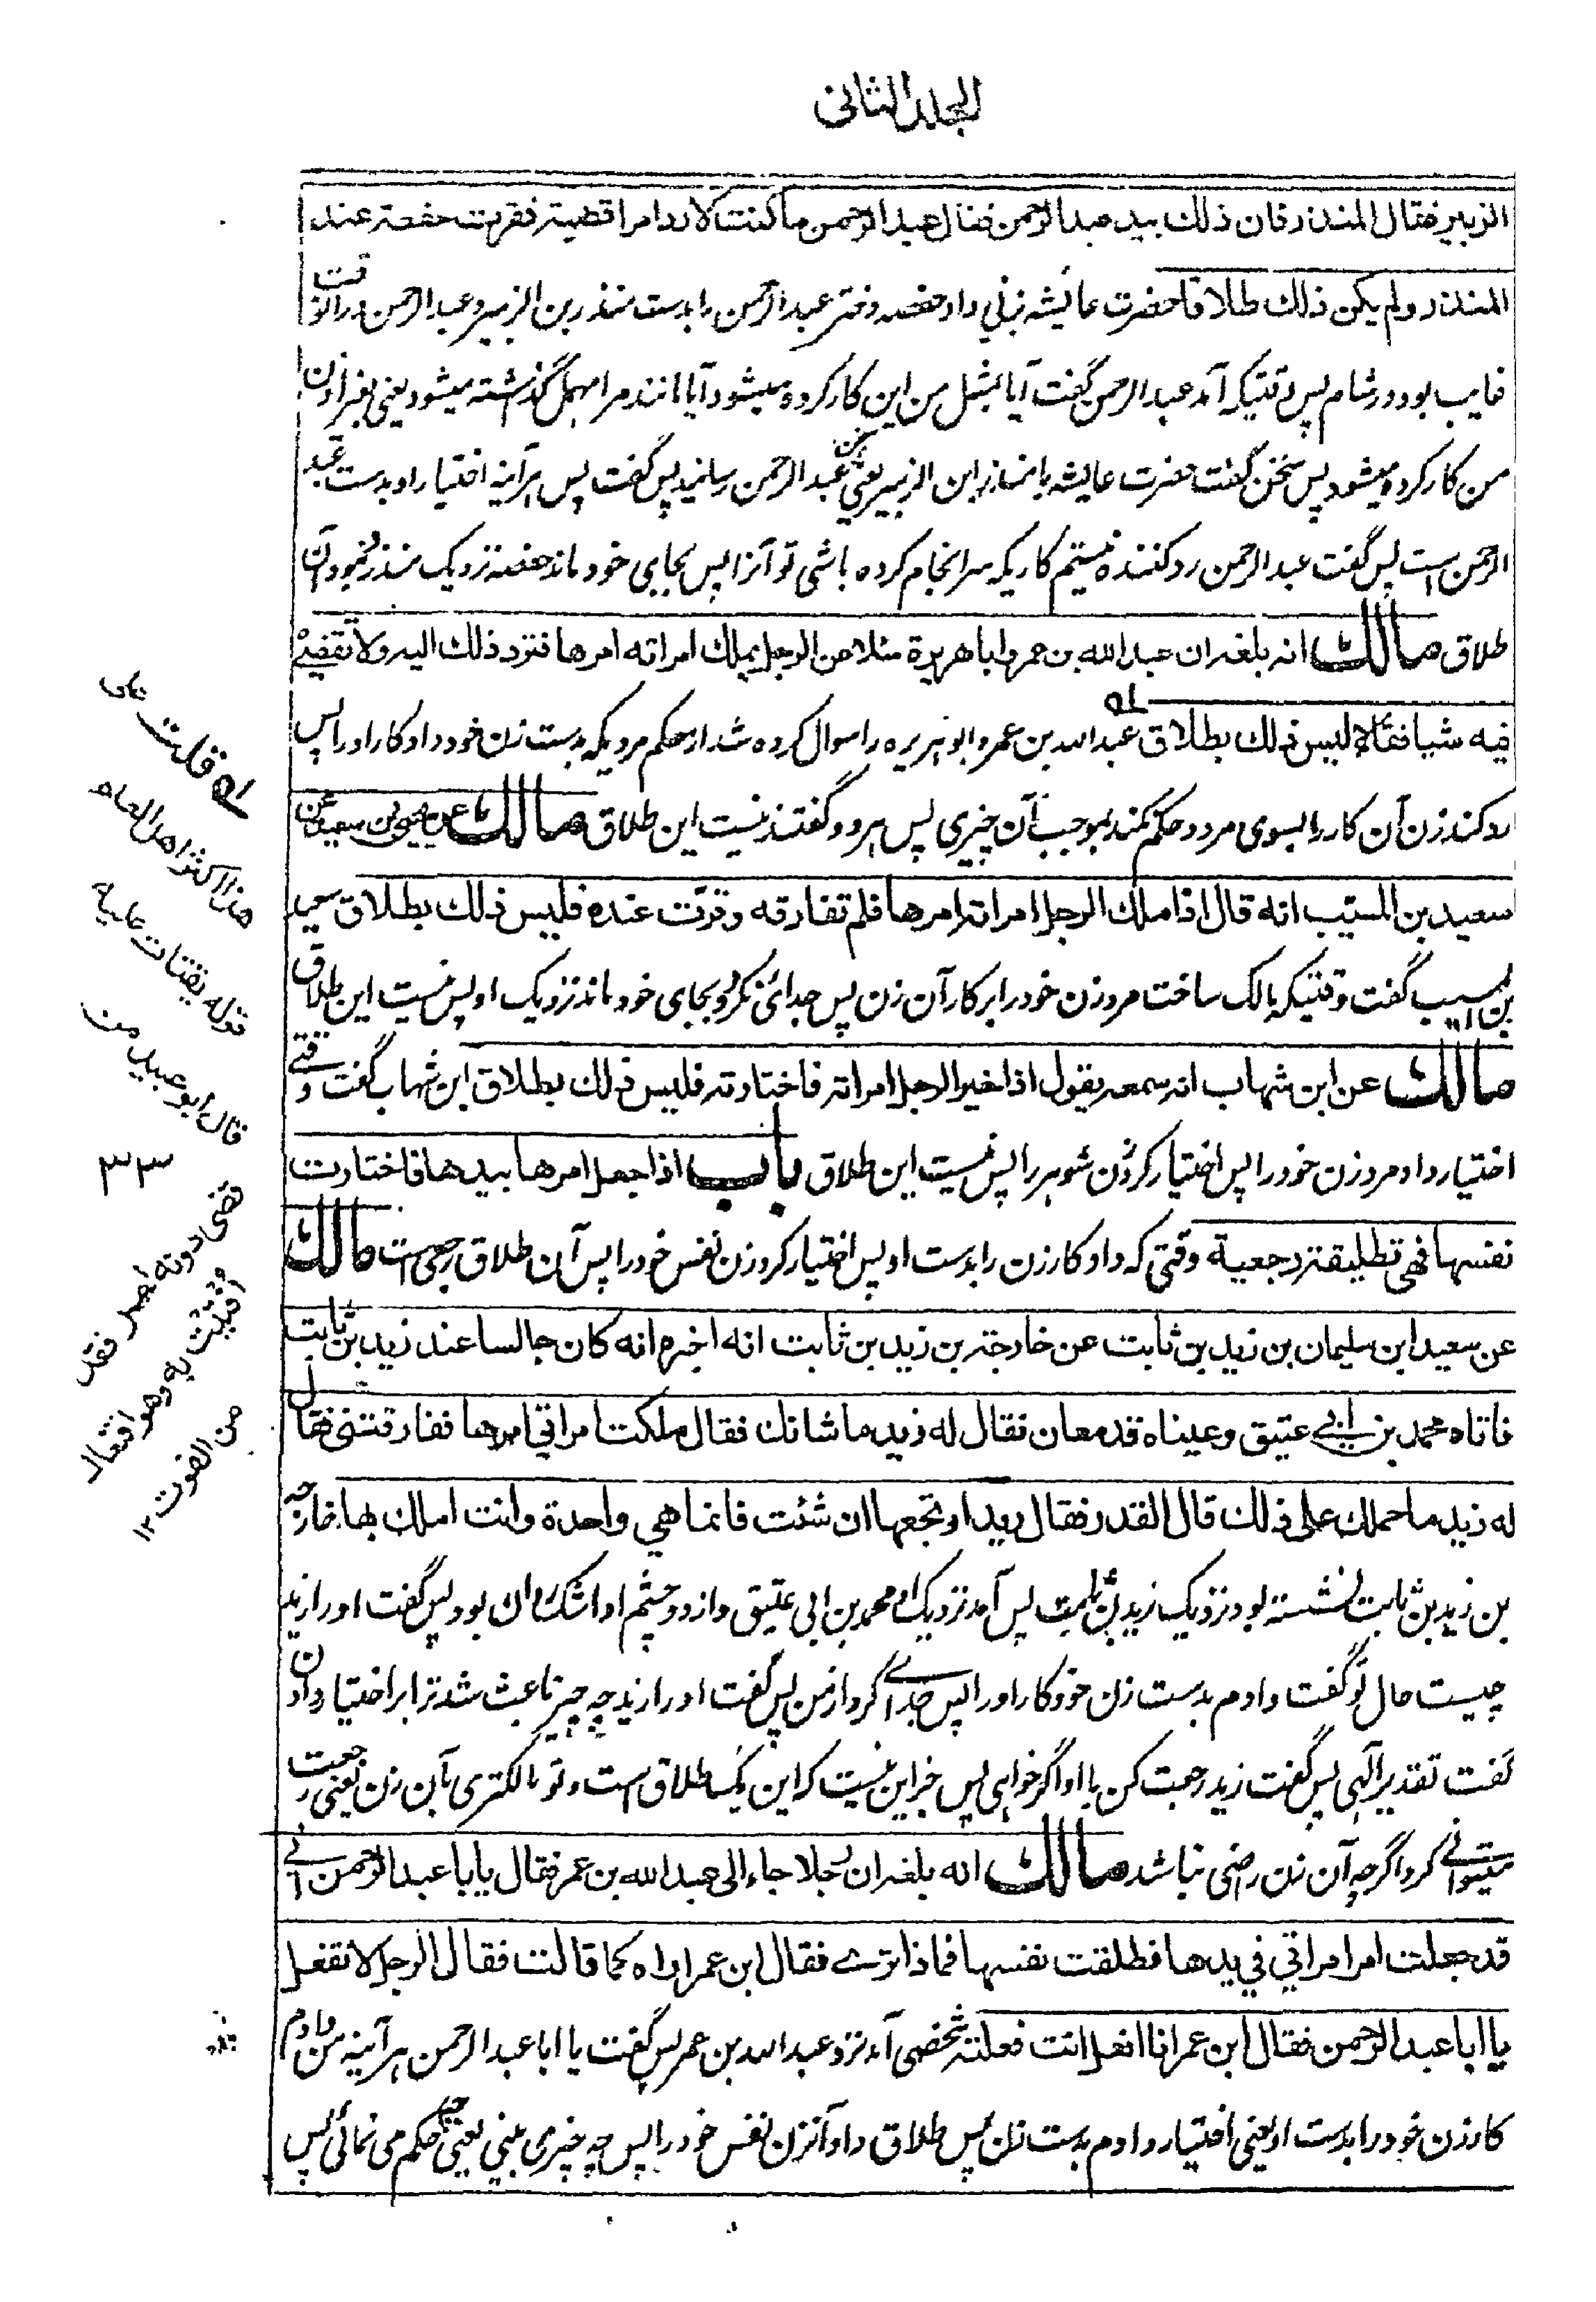 الجلد الثانی
الزبير فقال المنذر فان ذلك بيد عبد الرحمن فقال عبد الرحمن ما كنت لارد امرا قضيته فقرت حفصة عند
المنذر ولم يكن ذلك طلاقا حضرت عایشه بزنی داد حفصه دختر عبد الرحمن را بدست منذر بن الزبیر و عبد الرحمن درانوقت
غایب بود در شام پس وقتیکه آمد عبد الرحمن گفت آیا بمثل من این کار کرده میشود آیا مانند مرا مهمل گذاشته میشود یعنی بغیر اذن
من کار کرده میشود پس سخن گفت حضرت عایشه با منذر ابن الزبیر یعنی سخن عبد الرحمن رسانید پس گفت پس هرآینه اختیار او بدست عبد
الرحمن است پس گفت عبد الرحمن رد کننده نیستم کاریکه سرانجام کرده باشی تو آنرا پس بجای خود ماند حفصه نزدیک منذر و نبود آن
طلاق مالك انه بلغه ان عبد الله بن عمر و ابا هريرة سئلا عن الرجل يملك امراته امرها فترد ذلك اليه ولا تقضي
فيه شيا فقالا ليس ذلك بطلاق عبد الله بن عمر و ابو هریره را سوال کرده شد از حکم مردیکه بدست زن خود داد کار او را پس
رد کند زن آن کار را بسوی مرد و حکم نکند بموجب آن چیزی پس هر دو گفتند نیست این طلاق مالك عن يحيى بن سعيد عن
سعيد بن المسيب انه قال اذا ملك الرجل امراته امرها فلم تفارقه وقرت عنده فليس ذلك بطلاق سعید
بن المسیب گفت وقتیکه مالک ساخت مرد زن خود را بر کار آن زن پس جدائی نکرد و بجای خود ماند نزدیک او پس نیست این طلاق
مالك عن ابن شهاب انه سمعه يقول اذا خير الرجل امراته فاختارته فليس ذلك بطلاق ابن شهاب گفت وقتی
اختیار داد مرد زن خود را پس اختیار کرد زن شوهر را پس نیست این طلاق باب اذا جعل امرها بيدها فاختارت
نفسها فهي تطليقة رجعية وقتی که داد کار زن را بدست او پس اختیار کرد زن نفس خود را پس آن طلاق رجعی است مالك
عن سعيد ابن سليمان بن زيد بن ثابت عن خارجة بن زيد بن ثابت انه اخبره انه كان جالسا عند زيد بن ثابت
فاتاه محمد بن ابي عتيق وعيناه تدمعان فقال له زيد ما شانك فقال ملكت امراتي امرها ففارقتني فقال
له زيد ما حملك على ذلك قال القدر فقال زيد ارتجعها ان شئت فانما هي واحدة وانت املك بها خارجه
بن زید بن ثابت نشسته بود نزدیک زید بن ثابت پس آمد نزدیک او محمد بن ابی عتیق و از دو چشم او اشک روان بود پس گفت او را زید
چیست حال تو گفت دادم بدست زن خود کار او را پس جدائی کرد از من پس گفت او را زید چه چیز باعث شد ترا بر اختیار دادن
گفت تقدیر آلهی پس گفت زید رجعت کن با او اگر خواهی پس جز این نیست که این یک طلاق است و تو مالکتری بآن زن یعنی رجعت
میتوانی کرد اگرچه آن زن راضی نباشد مالك انه بلغه ان رجلا جاء الى عبد الله بن عمر فقال يا ابا عبد الرحمن اني
قد جعلت امر امراتي في يدها فطلقت نفسها فماذا ترى فقال ابن عمر اراه كما قالت فقال الرجل لا تفعل
يا ابا عبد الرحمن فقال ابن عمر انا افعل انت فعلته شخصی آمد نزد عبد الله بن عمر پس گفت یا ابا عبد الرحمن هرآینه من دادم
کار زن خود را بدست او یعنی اختیار دادم بدست زن پس طلاق داد آنزن نفس خود را پس چه چیزی بینی یعنی چه حکم می نمائی پس
له قلت على
هذا اكثر اهل العلم
قوله يفتات عليه
قال ابو عبيد من
٣٣
قضى دونه امر فقد
افتيت به وهو افتعال
من الفوت ١٢